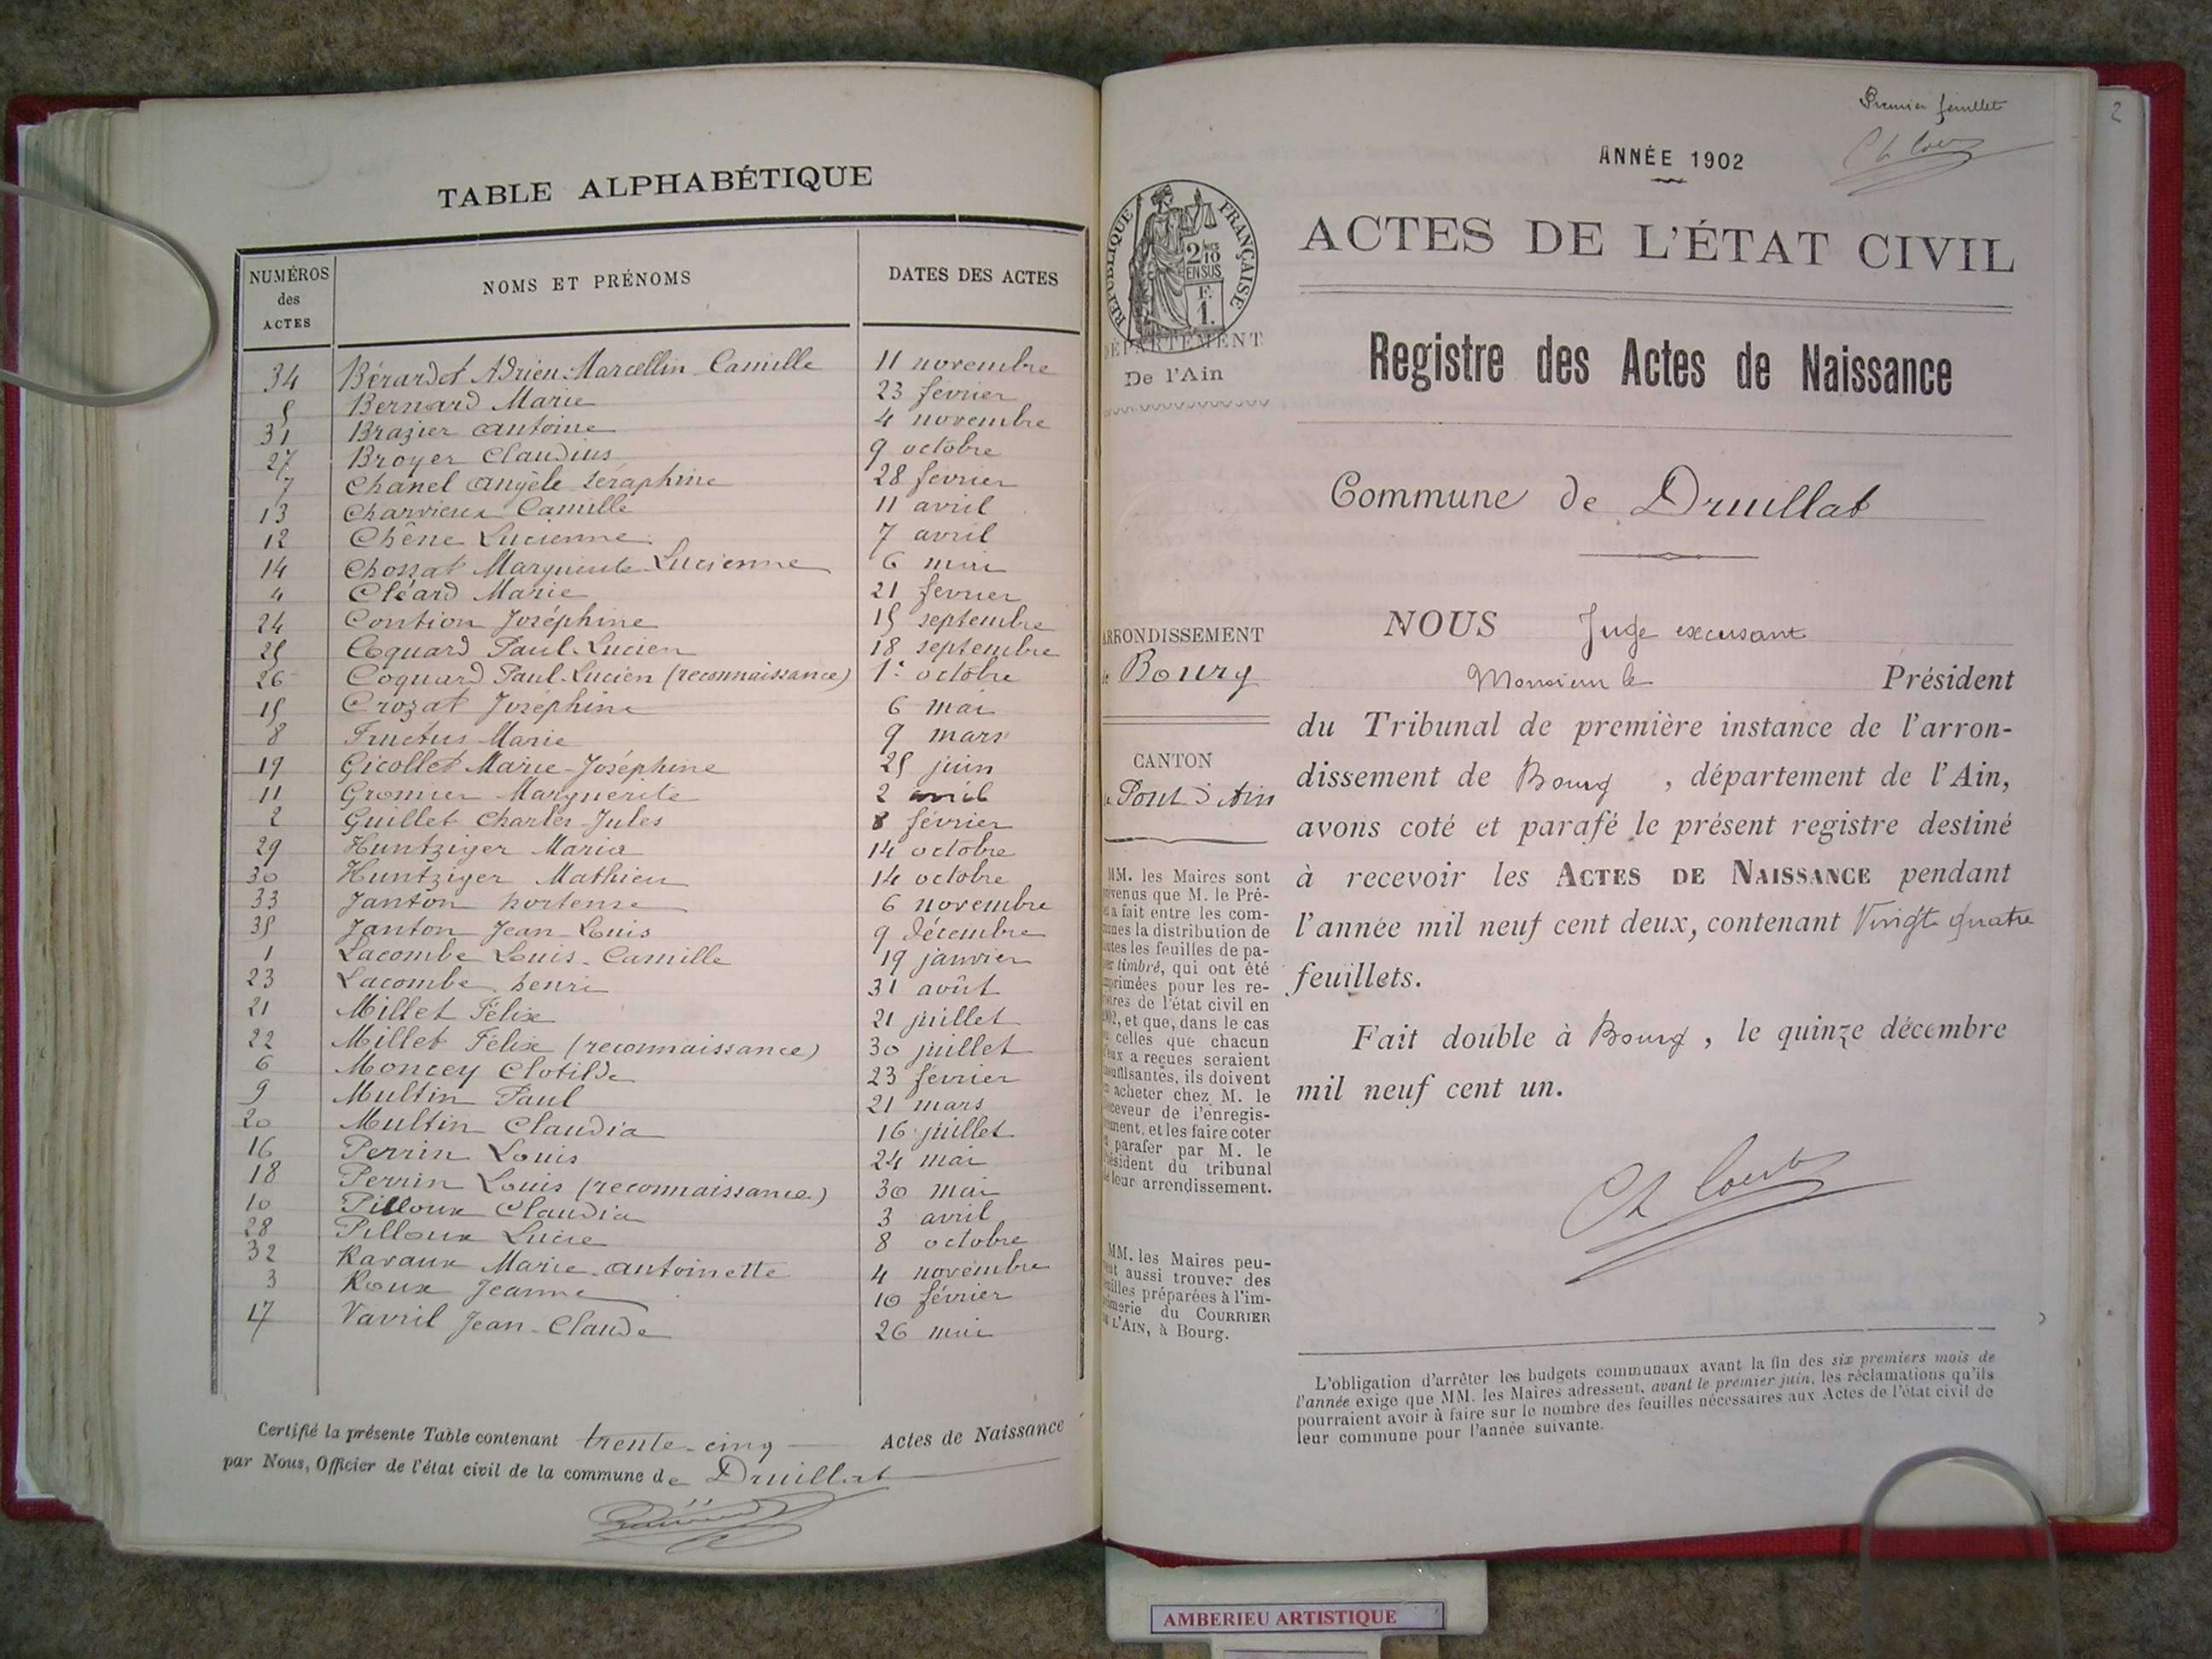 TABLE ALPHABÉTIQUE
NUMÉROS des ACTES NOMS ET PRÉNOMS DATES DES ACTES
34 Bérardet Adrien-Marcellin Camille 11 novembre
5 Bernard Marie 23 février
31 Brazier Antoine 4 novembre
27 Broyer Claudius 9 octobre
7 Chanel Angèle Séraphine 28 février
13 Charvieux Camille 11 avril
12 Chêne Lucienne 7 avril
14 Chossat Marguerite Lucienne 6 mai
4 Cléard Marie 21 fevrier
24 Contion Joséphine 15 septembre
25 Coquard Paul-Lucien 18 septembre
26 Coquard Paul-Lucien (reconnaissance) 1er octobre
15 Crozat Joséphine 6 mai
8 Fructus Marie 9 mars
19 Gicollet Marie-Joséphine 25 juin
11 Gromier Marguerite 2 avril
2 Guillet Charles-Jules 8 février
29 Huntziger Maria 14 octobre
30 Huntziger Mathieu 14 octobre
33 Janton hortense 6 novembre
35 Janton Jean-Louis 9 décembre
1 Lacombe Louis-Camille 19 janvier
23 Lacombe henri 31 août
21 Millet Félix 21 juillet
22 Millet Félix (reconnaissance) 30 juillet
6 Moncey Clotilde 23 février
9 Multin Paul 21 mars
20 Multin Claudia 16 juillet
16 Perrin Louis 24 mai
18 Perrin Louis (reconnaissance) 30 mai
10 Pilloux Claudia 3 avril
28 Pilloux Lucie 8 octobre
32 Ravaux Marie-Antoinette 4 novembre
3 Roux Jeanne 10 février
17 Vavril Jean-Claude 26 mai
Certifié la présente Table contenant trente-cinq Actes de Naissance
par Nous, Officier de l'état civil de la commune de Druillat
Premier feuillet
2
ANNÉE 1902
RÉPUBLIQUE FRANÇAISE
2/10
EN SUS
F.
1.
ACTES DE L'ÉTAT CIVIL
DÉPARTEMENT
De l'Ain
Registre des Actes de Naissance
Commune de Druillat
ARRONDISSEMENT
de Bourg
CANTON
Pont d'Ain
MM. les Maires sont
prévenus que M. le Pré-
fet a fait entre les com-
munes la distribution de
toutes les feuilles de pa-
pier timbré, qui ont été
imprimées pour les re-
gistres de l'état civil en
1902, et que, dans le cas
où celles que chacun
d'eux a reçues seraient
insuffisantes, ils doivent
en acheter chez M. le
receveur de l'enregis-
trement, et les faire coter
et parafer par M. le
Président du tribunal
de leur arrondissement.
MM. les Maires peu-
vent aussi trouver des
feuilles préparées à l'im-
primerie du COURRIER
DE L'AIN, à Bourg.
NOUS Juge excusant
Monsieur le Président
du Tribunal de première instance de l'arron-
dissement de Bourg, département de l'Ain,
avons coté et parafé le présent registre destiné
à recevoir les ACTES DE NAISSANCE pendant
l'année mil neuf cent deux, contenant Vingt quatre
feuillets.
Fait double à Bourg, le quinze décembre
mil neuf cent un.
L'obligation d'arrêter les budgets communaux avant la fin des six premiers mois de
l'année exige que MM. les Maires adressent, avant le premier juin, les réclamations qu'ils
pourraient avoir à faire sur le nombre des feuilles nécessaires aux Actes de l'état civil de
leur commune pour l'année suivante.
AMBERIEU ARTISTIQUE